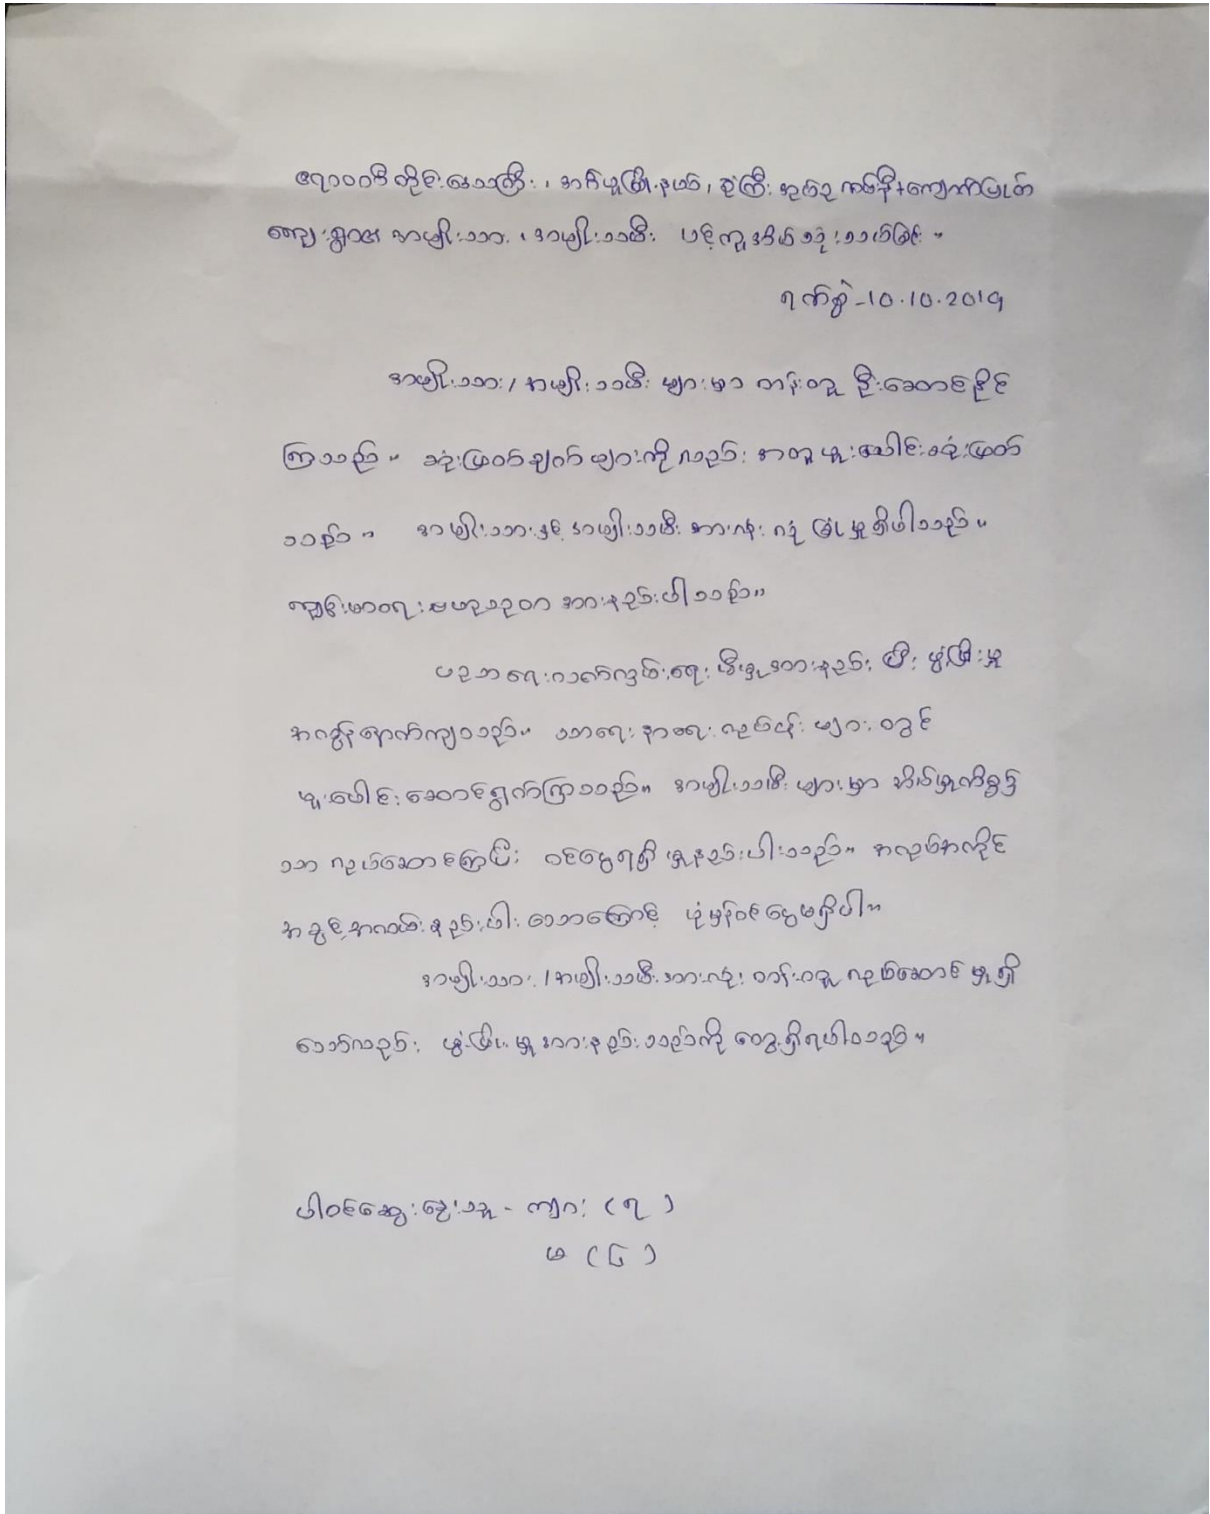 ဧရာဝတီတိုင်းဒေသကြီး ၊ အင်္ဂပူမြို့နယ် ၊ အုပ်စု ကင်းနီ+ကျောက်ပြုတ်
ကျေးရွာ၏ အမျိုးသား ၊ အမျိုးသမီး
ရက်စွဲ-10.10.2019
အမျိုးသား/အမျိုးသမီး များမှာ တန်းတူ ဦးဆောင်နိုင်
ကြသည်။ ဆုံးဖြတ်ချက်များကို လည်း အတူပူးပေါင်းဆုံးဖြတ်
သည်။ အမျိုးသားနှင့် အမျိုးသမီး အားလုံး လုံခြုံမှုရှိပါသည်။
ကျန်းမာရေးဗဟုသုတ အားနည်းပါသည်။
ပညာရေးလက်လှမ်းမှီမှုအားနည်းပြီး ဖွံ့ဖြိုးမှု
အလွန်နောက်ကျသည်။ သာရေးနာရေးလုပ်ငန်းများတွင်
ပူးပေါင်းဆောင်ရွက်ကြသည်။ အမျိုးသမီးများမှာ အိမ်မှုကိစ္စ
သာ လုပ်ဆောင်ကြပြီး ဝင်ငွေရရှိမှုနည်းပါးသည်။ အလုပ်အကိုင်
အခွင့်အလမ်းနည်းပါးသောကြောင့် ပုံမှန်ဝင်ငွေမရှိပါ။
အမျိုးသား/အမျိုးသမီးအားလုံး တန်းတူ လုပ်ဆောင်မှုရှိ
သော်လည်း ဖွံ့ဖြိုးမှုအားနည်းသည်ကို တွေ့ရှိရပါသည်။
ပါဝင်ဆွေးနွေးသူ - ကျား (၇)
မ (၆)